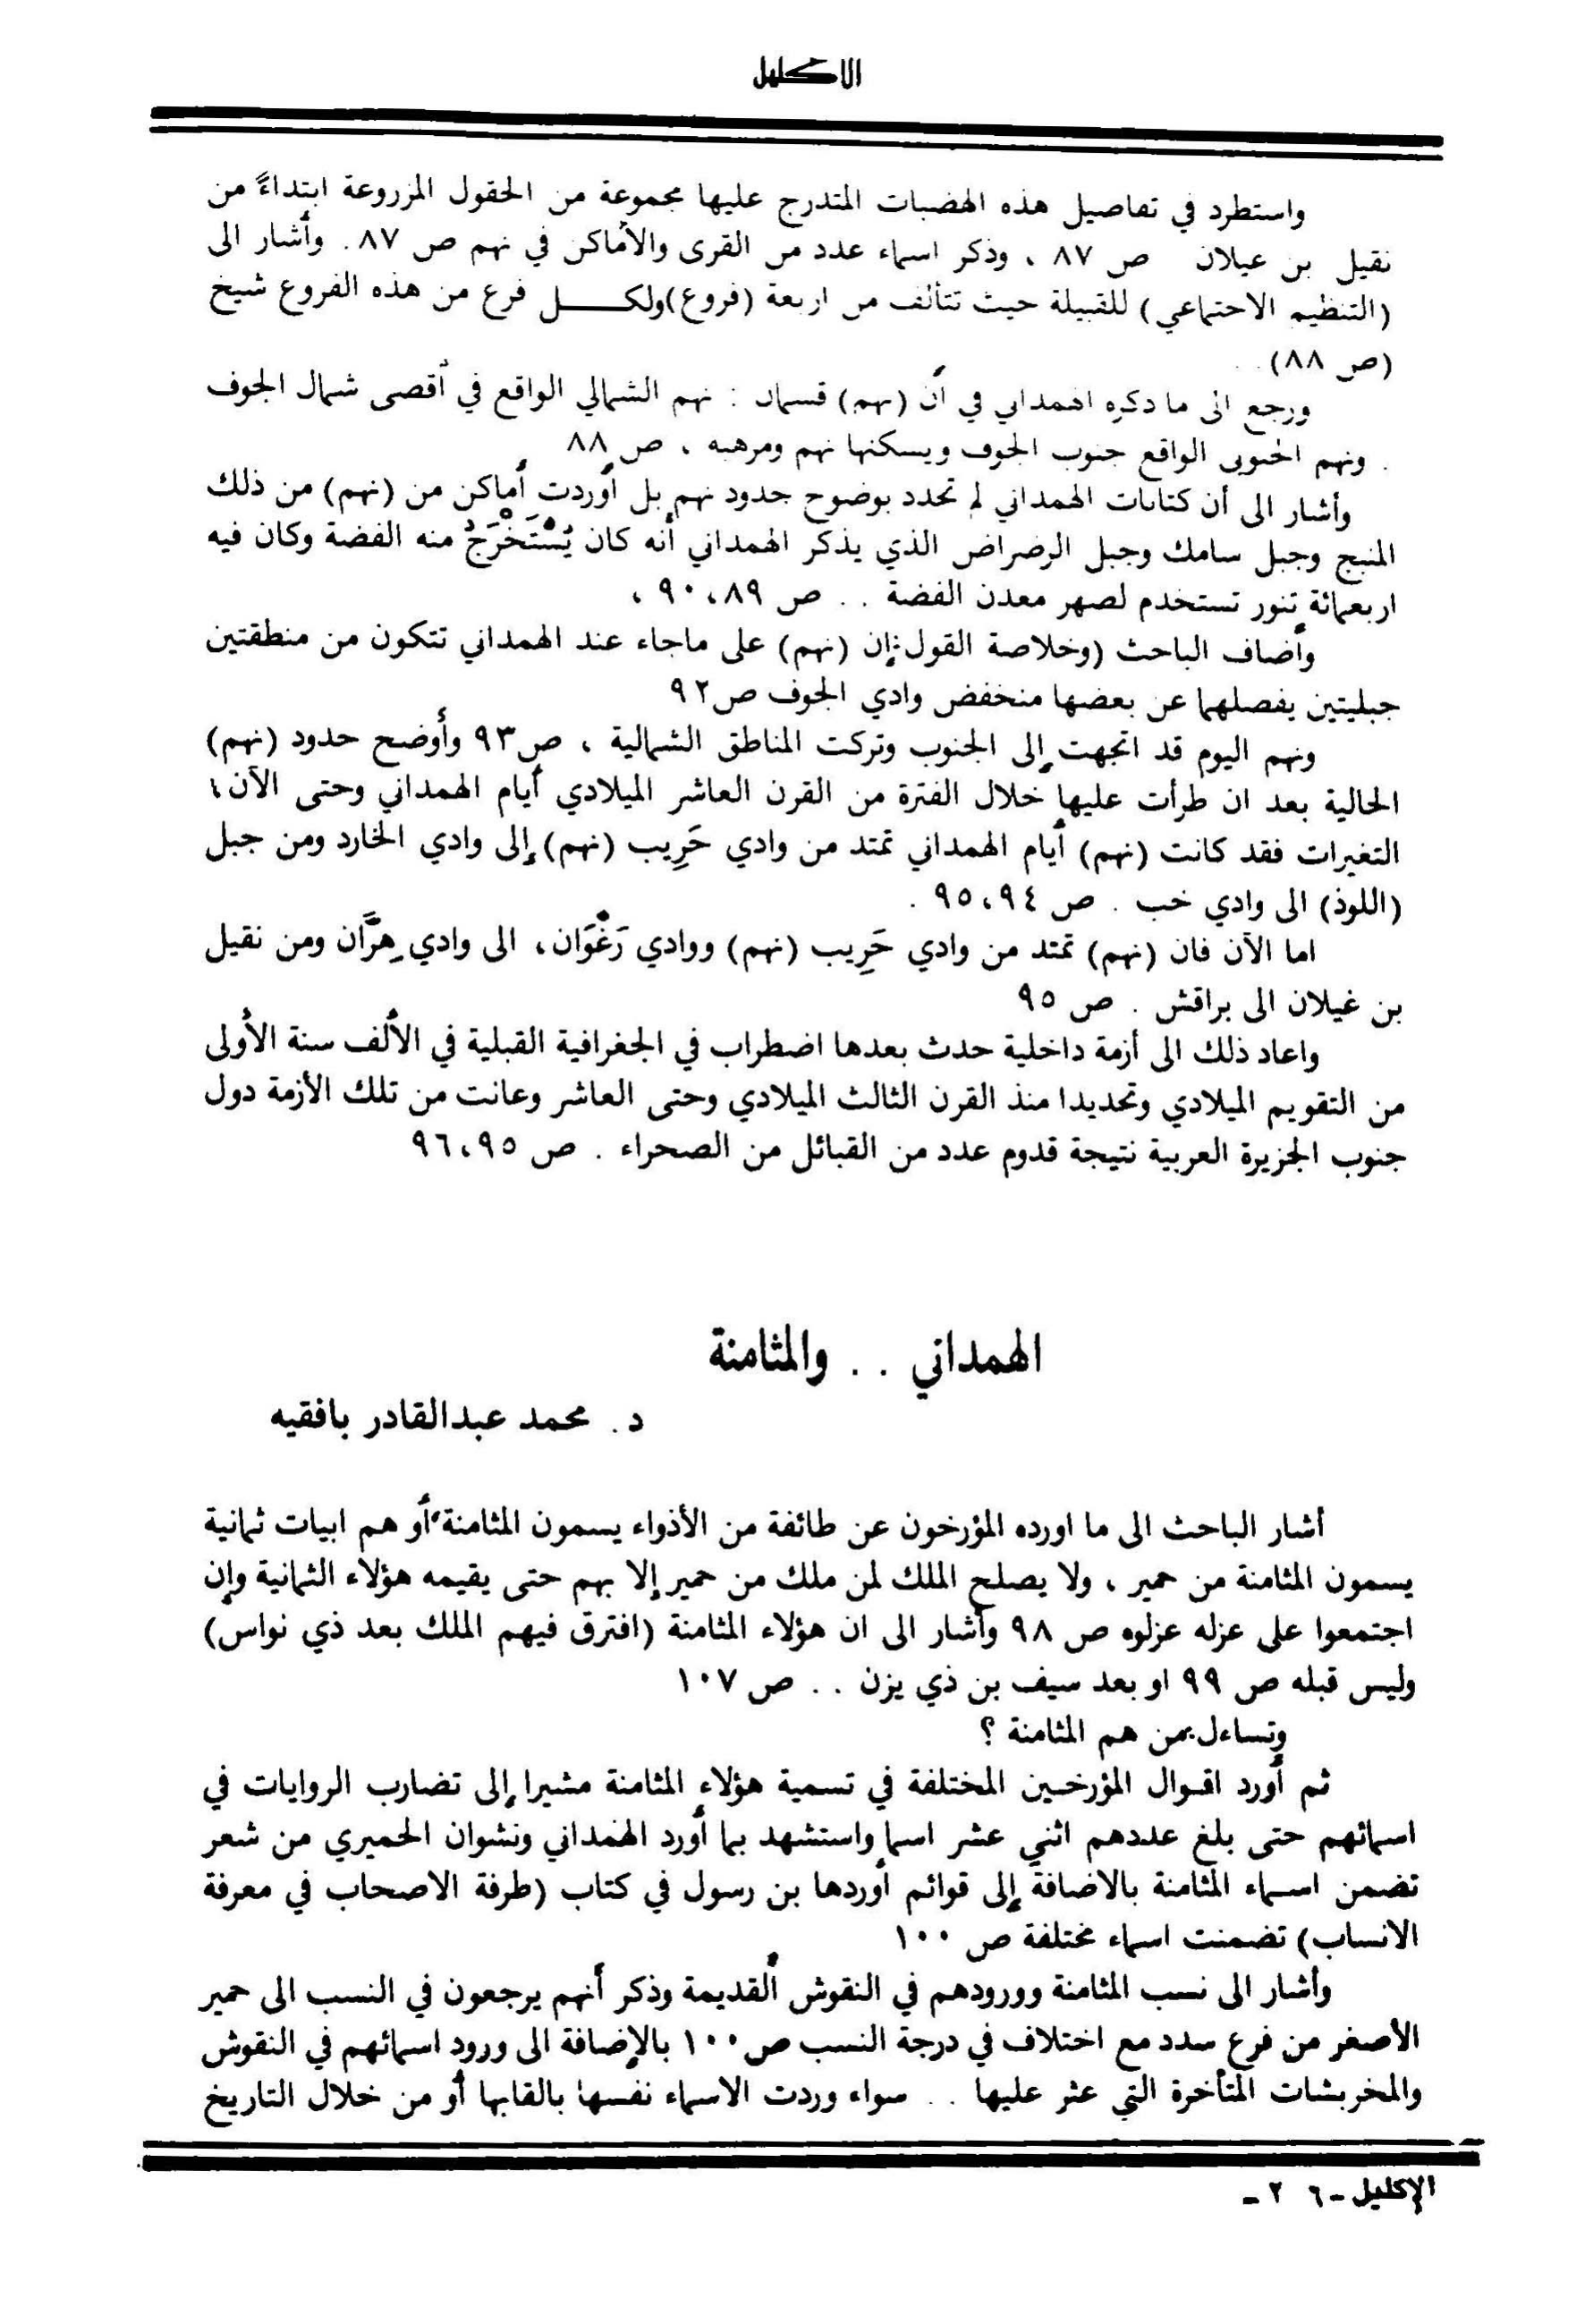 الاكليل
واستطرد في تفاصيل هذه الهضبات المتدرج عليها مجموعة من الحقول المزروعة ابتداءً من
نقيل بن عيلان ص ٨٧ ، وذكر اسماء عدد من القرى والأماكن في نهم ص ٨٧. وأشار الى
(التنظيم الاجتماعي) للقبيلة حيث تتألف من اربعة (فروع)ولكل فرع من هذه الفروع شيخ
(ص ٨٨) .
ورجع الى ما ذكره الهمداني في أن (نهم) قسمان : نهم الشمالي الواقع في أقصى شمال الجوف
. ونهم الجنوبي الواقع جنوب الجوف ويسكنها نهم ومرهبه ، ص ٨٨
وأشار الى أن كتابات الهمداني لم تحدد بوضوح حدود نهم بل أوردت أماكن من (نهم) من ذلك
المنبج وجبل سامك وجبل الرضراض الذي يذكر الهمداني أنه كان يُسْتَخْرَجُ منه الفضة وكان فيه
اربعمائة تنور تستخدم لصهر معدن الفضة . . ص ٨٩،٩٠ ،
وأضاف الباحث (وخلاصة القول:إن (نهم) على ماجاء عند الهمداني تتكون من منطقتين
جبليتين يفصلهما عن بعضها منخفض وادي الجوف ص٩٢
ونهم اليوم قد اتجهت إلى الجنوب وتركت المناطق الشمالية ، ص٩٣ وأوضح حدود (نهم)
الحالية بعد ان طرأت عليها خلال الفترة من القرن العاشر الميلادي أيام الهمداني وحتى الآن؛
التغيرات فقد كانت (نهم) أيام الهمداني تمتد من وادي حَرِيب (نهم) إلى وادي الخارد ومن جبل
(اللوذ) الى وادي خب . ص ٩٤،٩٥ .
اما الآن فان (نهم) تمتد من وادي حَرِيب (نهم) ووادي رَغْوَان، الى وادي هِرَّان ومن نقيل
بن غيلان الى براقش . ص ٩٥
واعاد ذلك الى أزمة داخلية حدث بعدها اضطراب في الجغرافية القبلية في الألف سنة الأولى
من التقويم الميلادي وتحديدا منذ القرن الثالث الميلادي وحتى العاشر وعانت من تلك الأزمة دول
جنوب الجزيرة العربية نتيجة قدوم عدد من القبائل من الصحراء . ص ٩٥،٩٦
الهمداني . . والمثامنة
د. محمد عبدالقادر بافقيه
أشار الباحث الى ما اورده المؤرخون عن طائفة من الأذواء يسمون المثامنة أو هم ابيات ثمانية
يسمون المثامنة من حمير ، ولا يصلح الملك لمن ملك من حمير إلا بهم حتى يقيمه هؤلاء الثمانية وإن
اجتمعوا على عزله عزلوه ص ٩٨ وأشار الى ان هؤلاء المثامنة (افترق فيهم الملك بعد ذي نواس)
وليس قبله ص ٩٩ او بعد سيف بن ذي يزن . . ص ١٠٧
وتساءل:من هم المثامنة ؟
ثم أورد اقوال المؤرخين المختلفة في تسمية هؤلاء المثامنة مشيرا إلى تضارب الروايات في
اسمائهم حتى بلغ عددهم اثني عشر اسما واستشهد بما أورد الهمداني ونشوان الحميري من شعر
تضمن اسماء المثامنة بالاضافة إلى قوائم أوردها بن رسول في كتاب (طرفة الاصحاب في معرفة
الانساب) تضمنت اسماء مختلفة ص ١٠٠
وأشار الى نسب المثامنة وورودهم في النقوش القديمة وذكر أنهم يرجعون في النسب الى حمير
الأصغر من فرع سدد مع اختلاف في درجة النسب ص١٠٠ بالإضافة الى ورود اسمائهم في النقوش
والمخربشات المتأخرة التي عثر عليها . . سواء وردت الاسماء نفسها بالقابها أو من خلال التاريخ
الإكليل - ٦ ٢ -